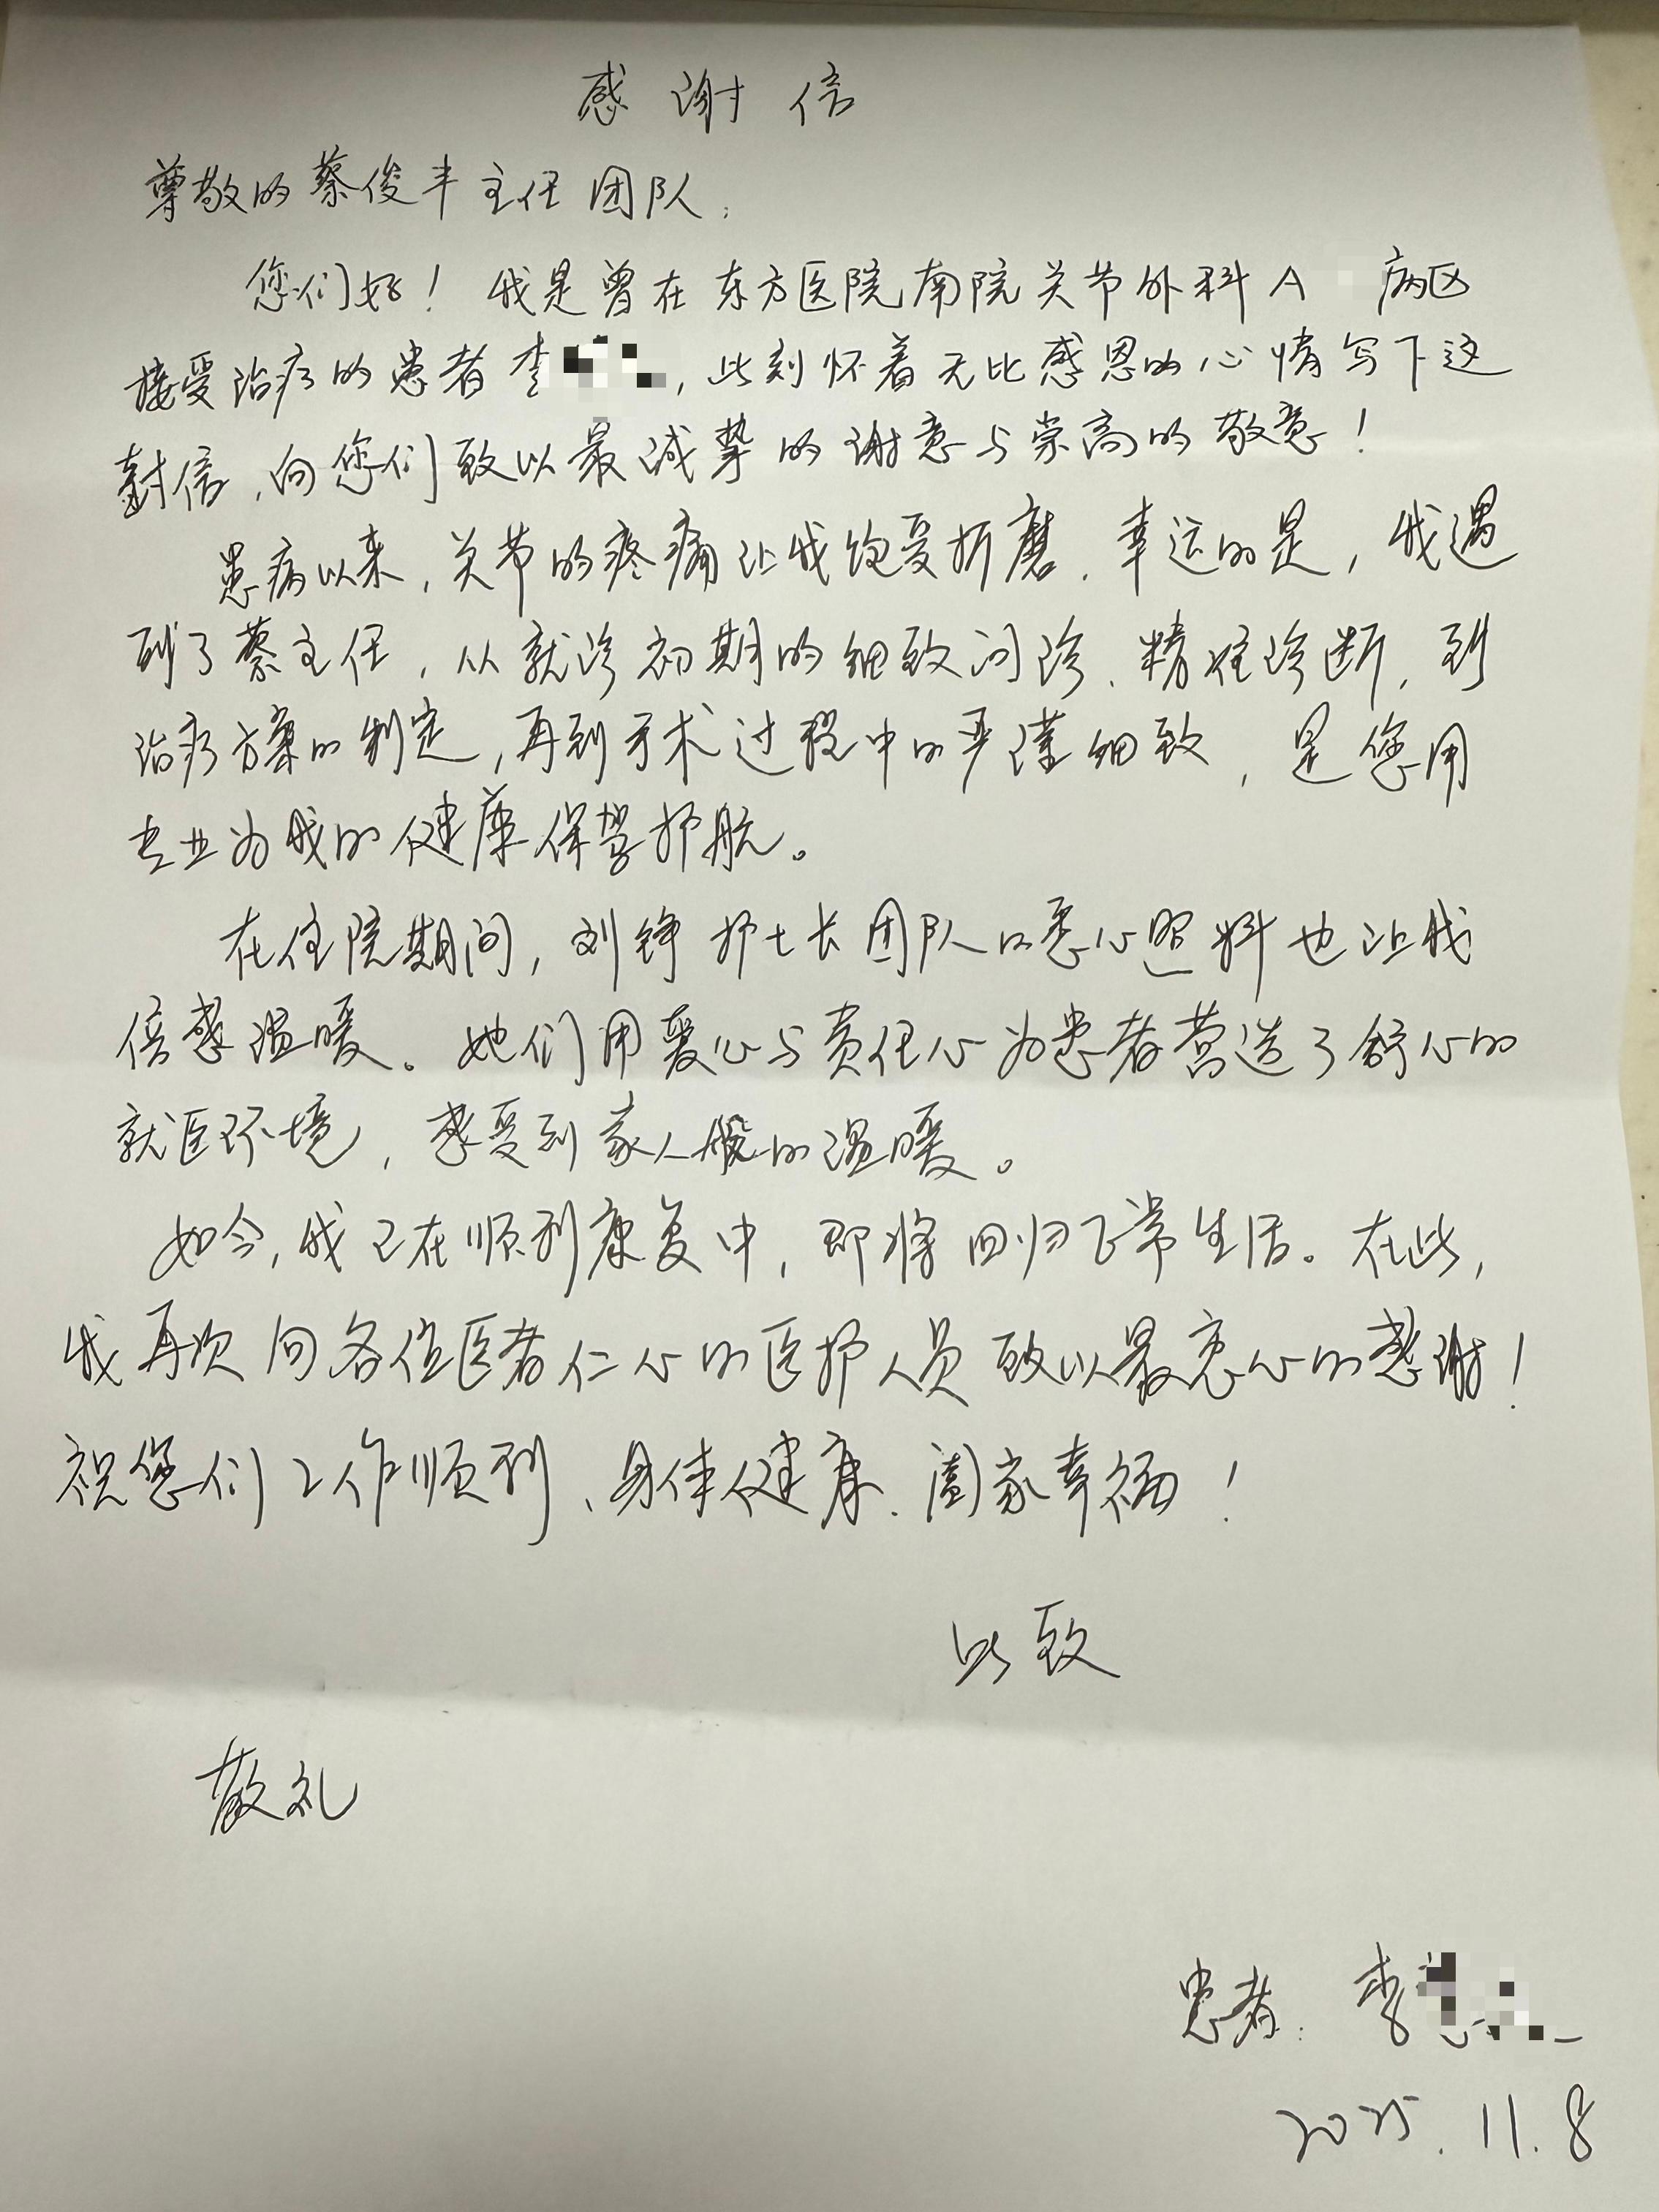 感谢信
尊敬的蔡俊丰主任团队:
您们好!我是曾在东方医院南院关节外科A 病区
接受治疗的患者李 ,此刻怀着无比感恩的心情写下这
封信,向您们致以最诚挚的谢意与崇高的敬意!
患病以来,关节的疼痛让我饱受折磨.幸运的是,我遇
到了蔡主任,从就诊初期的细致问诊、精准诊断,到
治疗方案的制定,再到手术过程中的严谨细致,是您用
专业为我的健康保驾护航。
在住院期间,刘铮护士长团队的悉心照料也让我
倍感温暖。她们用爱心与责任心为患者营造了舒心的
就医环境,感受到家人般的温暖。
如今,我已在顺利康复中,即将回归正常生活。在此,
我再次向各位医者仁心的医护人员致以最衷心的感谢!
祝您们工作顺利、身体健康、阖家幸福!
此致
敬礼
患者:李
2025.11.8